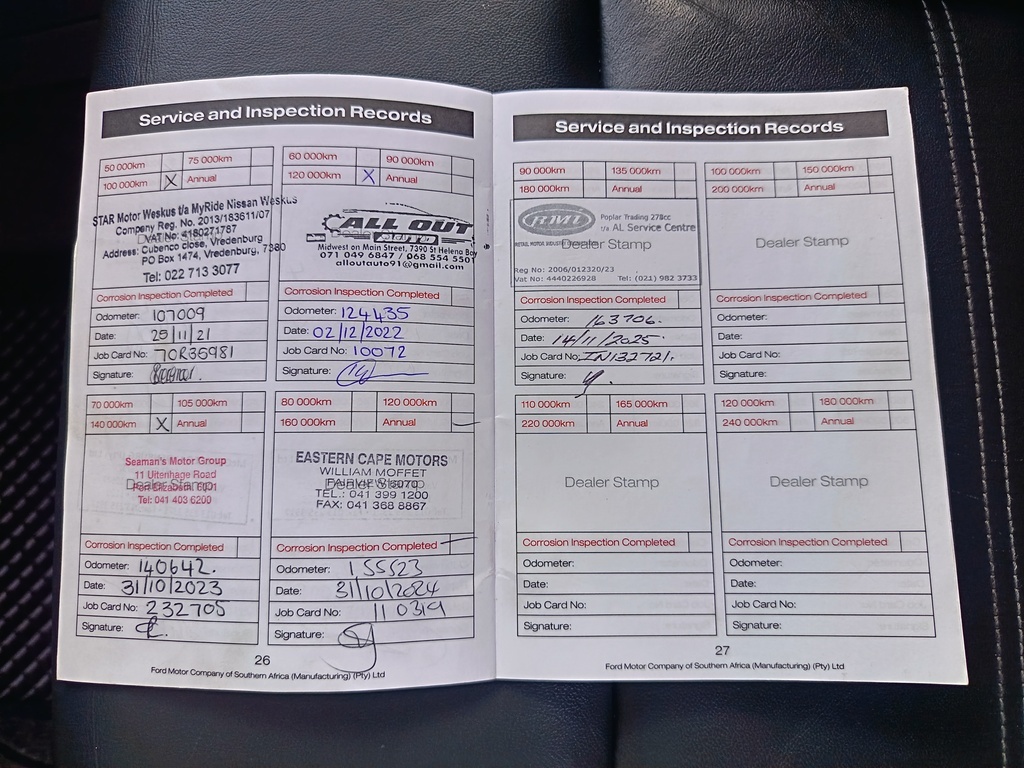 Service and Inspection Records
50 000km 75 000km
100 000km X Annual
STAR Motor Weskus t/a MyRide Nissan Weskus
Company Reg. No. 2013/183611/07
VAT No: 4180271787
Address: Cubenco close, Vredenburg
PO Box 1474, Vredenburg, 7380
Tel: 022 713 3077
Corrosion Inspection Completed
Odometer: 107009
Date: 25/11/21
Job Card No: 70R36981
Signature:
60 000km 90 000km
120 000km X Annual
ALL OUT
AUTO
Midwest on Main Street, 7390 St Helena Bay
071 049 6847 / 068 554 5501
alloutauto91@gmail.com
Corrosion Inspection Completed
Odometer: 124435
Date: 02/12/2022
Job Card No: 10072
Signature:
70 000km 105 000km
140 000km X Annual
Seaman's Motor Group
11 Uitenhage Road
Dealer Stamp
Port Elizabeth 6001
Tel: 041 403 6200
Corrosion Inspection Completed
Odometer: 140642.
Date: 31/10/2023
Job Card No: 232705
Signature:
80 000km 120 000km
160 000km Annual
EASTERN CAPE MOTORS
WILLIAM MOFFET
FAIRVIEW 6070
Dealer Stamp
TEL.: 041 399 1200
FAX: 041 368 8867
Corrosion Inspection Completed
Odometer: 155523
Date: 31/10/2024
Job Card No: 110319
Signature:
26
Ford Motor Company of Southern Africa (Manufacturing) (Pty) Ltd
Service and Inspection Records
90 000km 135 000km
180 000km Annual
RMI
Poplar Trading 278cc
t/a AL Service Centre
RETAIL MOTOR INDUSTRY
Dealer Stamp
Reg No: 2006/012320/23
Vat No: 4440226928 Tel: (021) 982 3733
Corrosion Inspection Completed
Odometer: 163706.
Date: 14/11/2025.
Job Card No: IN132721.
Signature:
100 000km 150 000km
200 000km Annual
Dealer Stamp
Corrosion Inspection Completed
Odometer:
Date:
Job Card No:
Signature:
110 000km 165 000km
220 000km Annual
Dealer Stamp
Corrosion Inspection Completed
Odometer:
Date:
Job Card No:
Signature:
120 000km 180 000km
240 000km Annual
Dealer Stamp
Corrosion Inspection Completed
Odometer:
Date:
Job Card No:
Signature:
27
Ford Motor Company of Southern Africa (Manufacturing) (Pty) Ltd